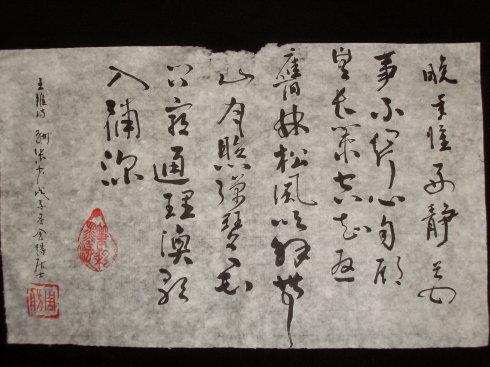 晚年惟好靜萬
事不關心自顧
無長策空知返
舊林松風吹解帶
山月照彈琴君
問窮通理漁歌
入浦深
王維詩 酬張少府 戊子 居士